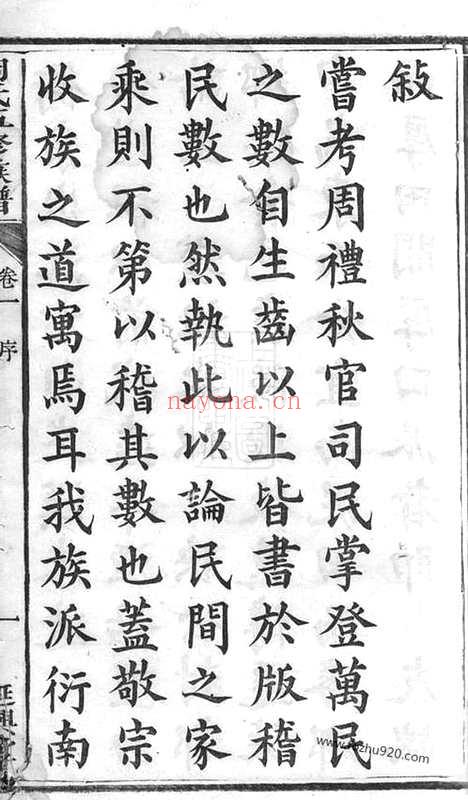 敍
嘗考周禮秋官司民掌登萬民
之數自生齒以上皆書於版稽
民數也然執此以論民間之家
乘則不第以稽其數也蓋敬宗
收族之道寓焉耳我族派衍南
氏五修族譜
卷一
序
一
nayona.cn